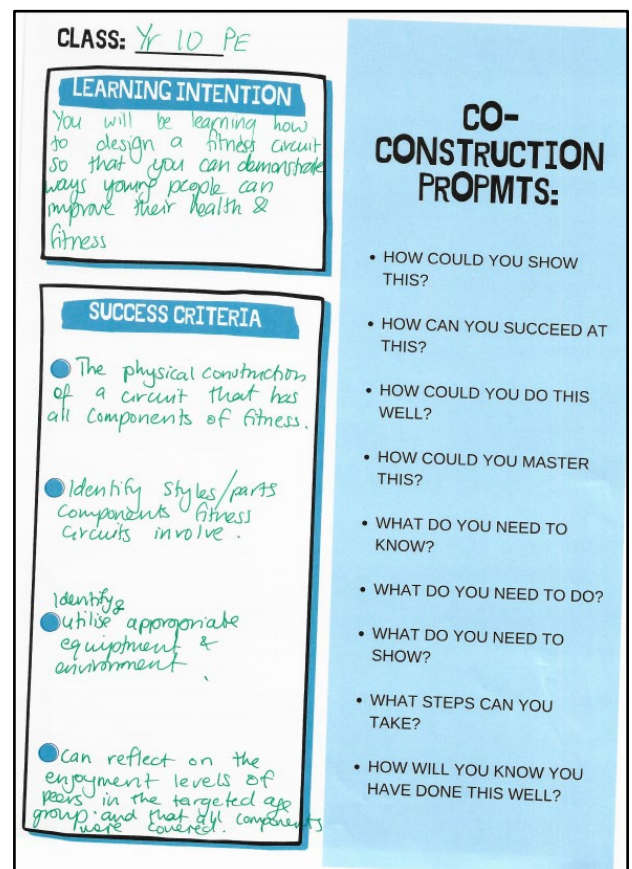 CLASS: Yr 10 PE
LEARNING INTENTION
You will be learning how
to design a fitness circuit
so that you can demonstrate
ways young people can
improve their health &
fitness
SUCCESS CRITERIA
The physical construction
of a circuit that has
all components of fitness.
Identify styles/parts
components fitness
circuits involve.
Identify &
utilise appropriate
equiptment &
environment.
Can reflect on the
enjoyment levels of
peers in the targeted age
group and that all components
were covered.
CO-
CONSTRUCTION
PROPMTS:
• HOW COULD YOU SHOW
THIS?
• HOW CAN YOU SUCCEED AT
THIS?
• HOW COULD YOU DO THIS
WELL?
• HOW COULD YOU MASTER
THIS?
• WHAT DO YOU NEED TO
KNOW?
• WHAT DO YOU NEED TO DO?
• WHAT DO YOU NEED TO
SHOW?
• WHAT STEPS CAN YOU
TAKE?
• HOW WILL YOU KNOW YOU
HAVE DONE THIS WELL?